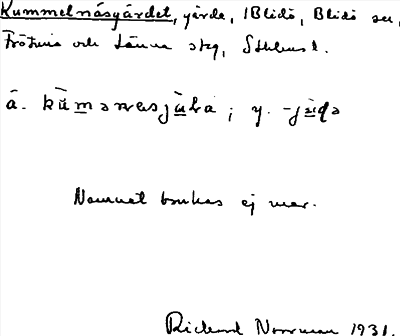 Kummelnäsgärdet, gärde, 1 Blidö, Blidö sn,
Frötuna och Länna skg, Sthlms l.
ä. kùmǝnɛsjæ̀ɽa; y. -jædǝ
Namnet brukas ej mer.
Rickard Norrman 1931.